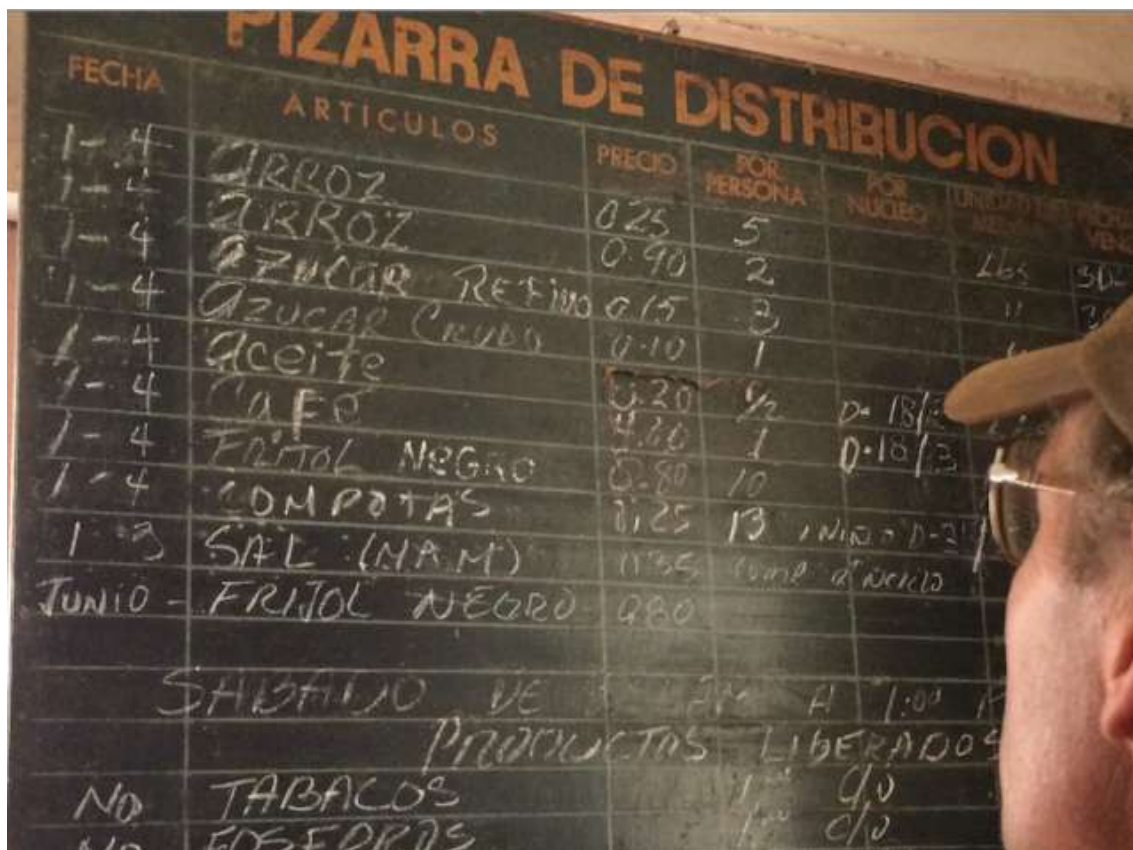 PIZARRA DE DISTRIBUCION
FECHA ARTICULOS PRECIO POR PERSONA POR NUCLEO UNIDAD
1-4 ARROZ 025 5 Lbs 30-
1-4 ARROZ 0.90 2 "
1-4 AZUCAR REFINO 0.15 3
1-4 AZUCAR CRUDO 0.10 1
1-4 aceite 0.20 1/2 D- 18/3
1-4 CAFE 1 D-18/3
1-4 FRIJOL NEGRO 0.80 10
1-4 COMPOTAS 0.25 13
1-3 SAL (M.A.M) 035
JUNIO - FRIJOL NEGRO 080
SABADO DE A 1:00
PRODUCTOS LIBERADOS
NO TABACOS 1.00 C/U
NO FOSFOROS 1.00 C/U